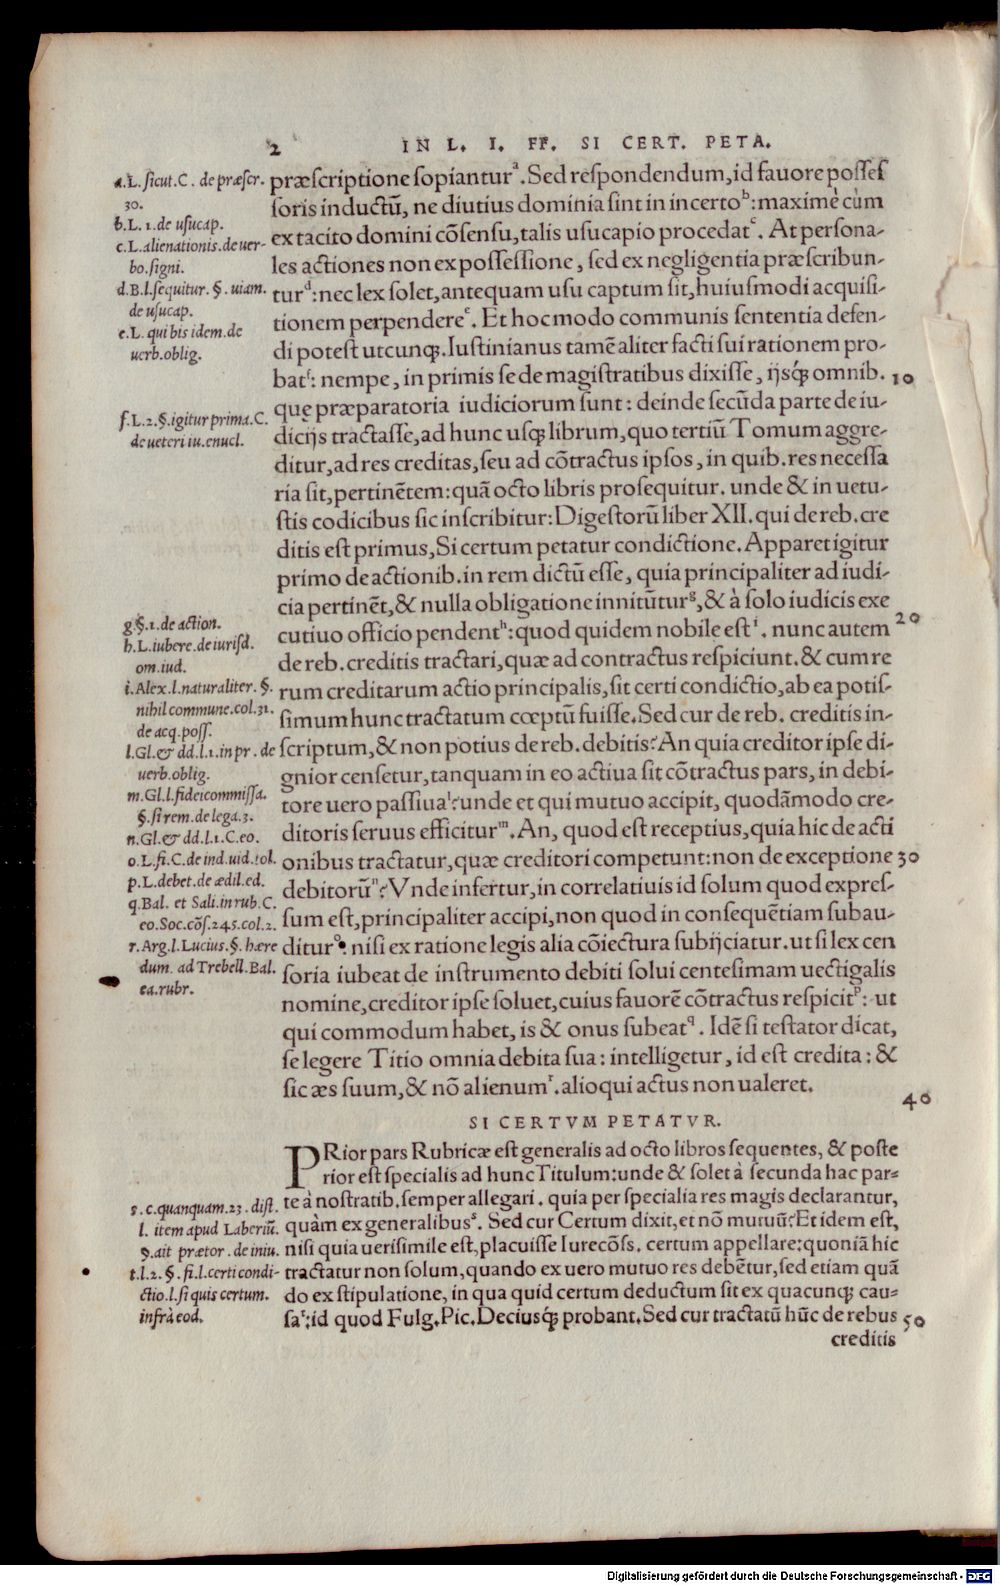 2 IN L. I. FF. SI CERT. PETA.
a.L.ſicut.C. de præſcr.
30.
b.L. 1.de uſucap.
c.L.alienationis.de uer-
bo.ſigni.
d.B.l.ſequitur. §. uiam.
de uſucap.
e.L. qui bis idem.de
uerb.oblig.
f.L.2.§.igitur prima.C.
de ueteri iu.enucl.
g.§.1.de action.
h.L.iubere.de iuriſd.
om.iud.
i.Alex.l.naturaliter. §.
nihil commune.col.31.
de acq.poſſ.
l.Gl.& dd.l.1.in pr. de
uerb.oblig.
m.Gl.l.fideicommiſſa.
§.ſi rem.de lega.3.
n.Gl.& dd.l.1.C.eo.
o.L.fi.C.de ind.uid.tol.
p.L.debet.de ædil.ed.
q.Bal. et Sali.in rub.C.
eo.Soc.cõſ.245.col.2.
r.Arg.l.Lucius.§. hære
dum. ad Trebell.Bal.
ea.rubr.
præſcriptione ſopiantur a. Sed reſpondendum, id fauore poſſeſ
ſoris inductũ, ne diutius dominia ſint in incerto b: maximè cùm
ex tacito domini cõſenſu, talis uſucapio procedat c. At perſona-
les actiones non ex poſſeſſione, ſed ex negligentia præſcribun-
tur d: nec lex ſolet, antequam uſu captum ſit, huiuſmodi acquiſi-
tionem perpendere e. Et hoc modo communis ſententia defen-
di poteſt utcunq;. Iuſtinianus tamẽ aliter facti ſui rationem pro-
bat f: nempe, in primis ſe de magiſtratibus dixiſſe, ijsq́; omnib. 10
quę præparatoria iudiciorum ſunt: deinde ſecũda parte de iu-
dicijs tractaſſe, ad hunc uſq; librum, quo tertiũ Tomum aggre-
ditur, ad res creditas, ſeu ad cõtractus ipſos, in quib. res neceſſa
ria ſit, pertinẽtem: quã octo libris proſequitur. unde & in uetu-
ſtis codicibus ſic inſcribitur: Digeſtorũ liber XII. qui de reb. cre
ditis eſt primus, Si certum petatur condictione. Apparet igitur
primo de actionib. in rem dictũ eſſe, quia principaliter ad iudi-
cia pertinẽt, & nulla obligatione innitũtur g, & à ſolo iudicis exe
cutiuo officio pendent h: quod quidem nobile eſt i. nunc autem 20
de reb. creditis tractari, quæ ad contractus reſpiciunt. & cum re
rum creditarum actio principalis, ſit certi condictio, ab ea potiſ-
ſimum hunc tractatum cœptũ fuiſſe. Sed cur de reb. creditis in-
ſcriptum, & non potius de reb. debitis? An quia creditor ipſe di-
gnior cenſetur, tanquam in eo actiua ſit cõtractus pars, in debi-
tore uero paſſiua l? unde et qui mutuo accipit, quodãmodo cre-
ditoris ſeruus efficitur m. An, quod eſt receptius, quia hic de acti
onibus tractatur, quæ creditori competunt: non de exceptione 30
debitorũ n? Vnde infertur, in correlatiuis id ſolum quod expreſ-
ſum eſt, principaliter accipi, non quod in conſequẽtiam ſubau-
ditur o. niſi ex ratione legis alia cõiectura ſubijciatur. ut ſi lex cen
ſoria iubeat de inſtrumento debiti ſolui centeſimam uectigalis
nomine, creditor ipſe ſoluet, cuius fauorẽ cõtractus reſpicit p: ut
qui commodum habet, is & onus ſubeat q. Idẽ ſi teſtator dicat,
ſe legere Titio omnia debita ſua: intelligetur, id eſt credita: &
ſic æs ſuum, & nõ alienum r. alioqui actus non ualeret.
40
SI CERTVM PETATVR.
PRior pars Rubricæ eſt generalis ad octo libros ſequentes, & poſte
rior eſt ſpecialis ad hunc Titulum: unde & ſolet à ſecunda hac par-
te à noſtratib. ſemper allegari. quia per ſpecialia res magis declarantur,
quàm ex generalibus s. Sed cur Certum dixit, et nõ mutuũ? Et idem eſt,
niſi quia ueriſimile eſt, placuiſſe Iurecõſſ. certum appellare: quoniã hic
tractatur non ſolum, quando ex uero mutuo res debẽtur, ſed etiam quã
do ex ſtipulatione, in qua quid certum deductum ſit ex quacunq; cau-
ſa t: id quod Fulg. Pic. Deciusq́; probant. Sed cur tractatũ hũc de rebus 50
creditis
s. c.quanquam.23. diſt.
l. item apud Laberiũ.
§.ait prætor. de iniu.
t.l.2. §. fi.l.certi condi-
ctio.l.ſi quis certum.
infrà eod.
Digitalisierung gefördert durch die Deutsche Forschungsgemeinschaft - DFG